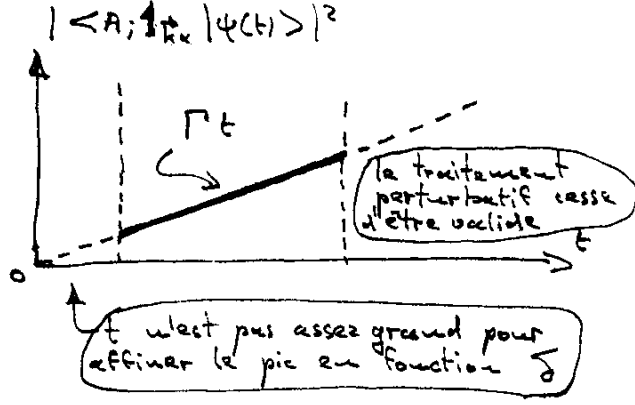 |<A; 1_k⃗α |ψ(t)>|²
Γt
le traitement
perturbatif cesse
d'être valide
t
0
t n'est pas assez grand pour
affiner le pic en fonction δ